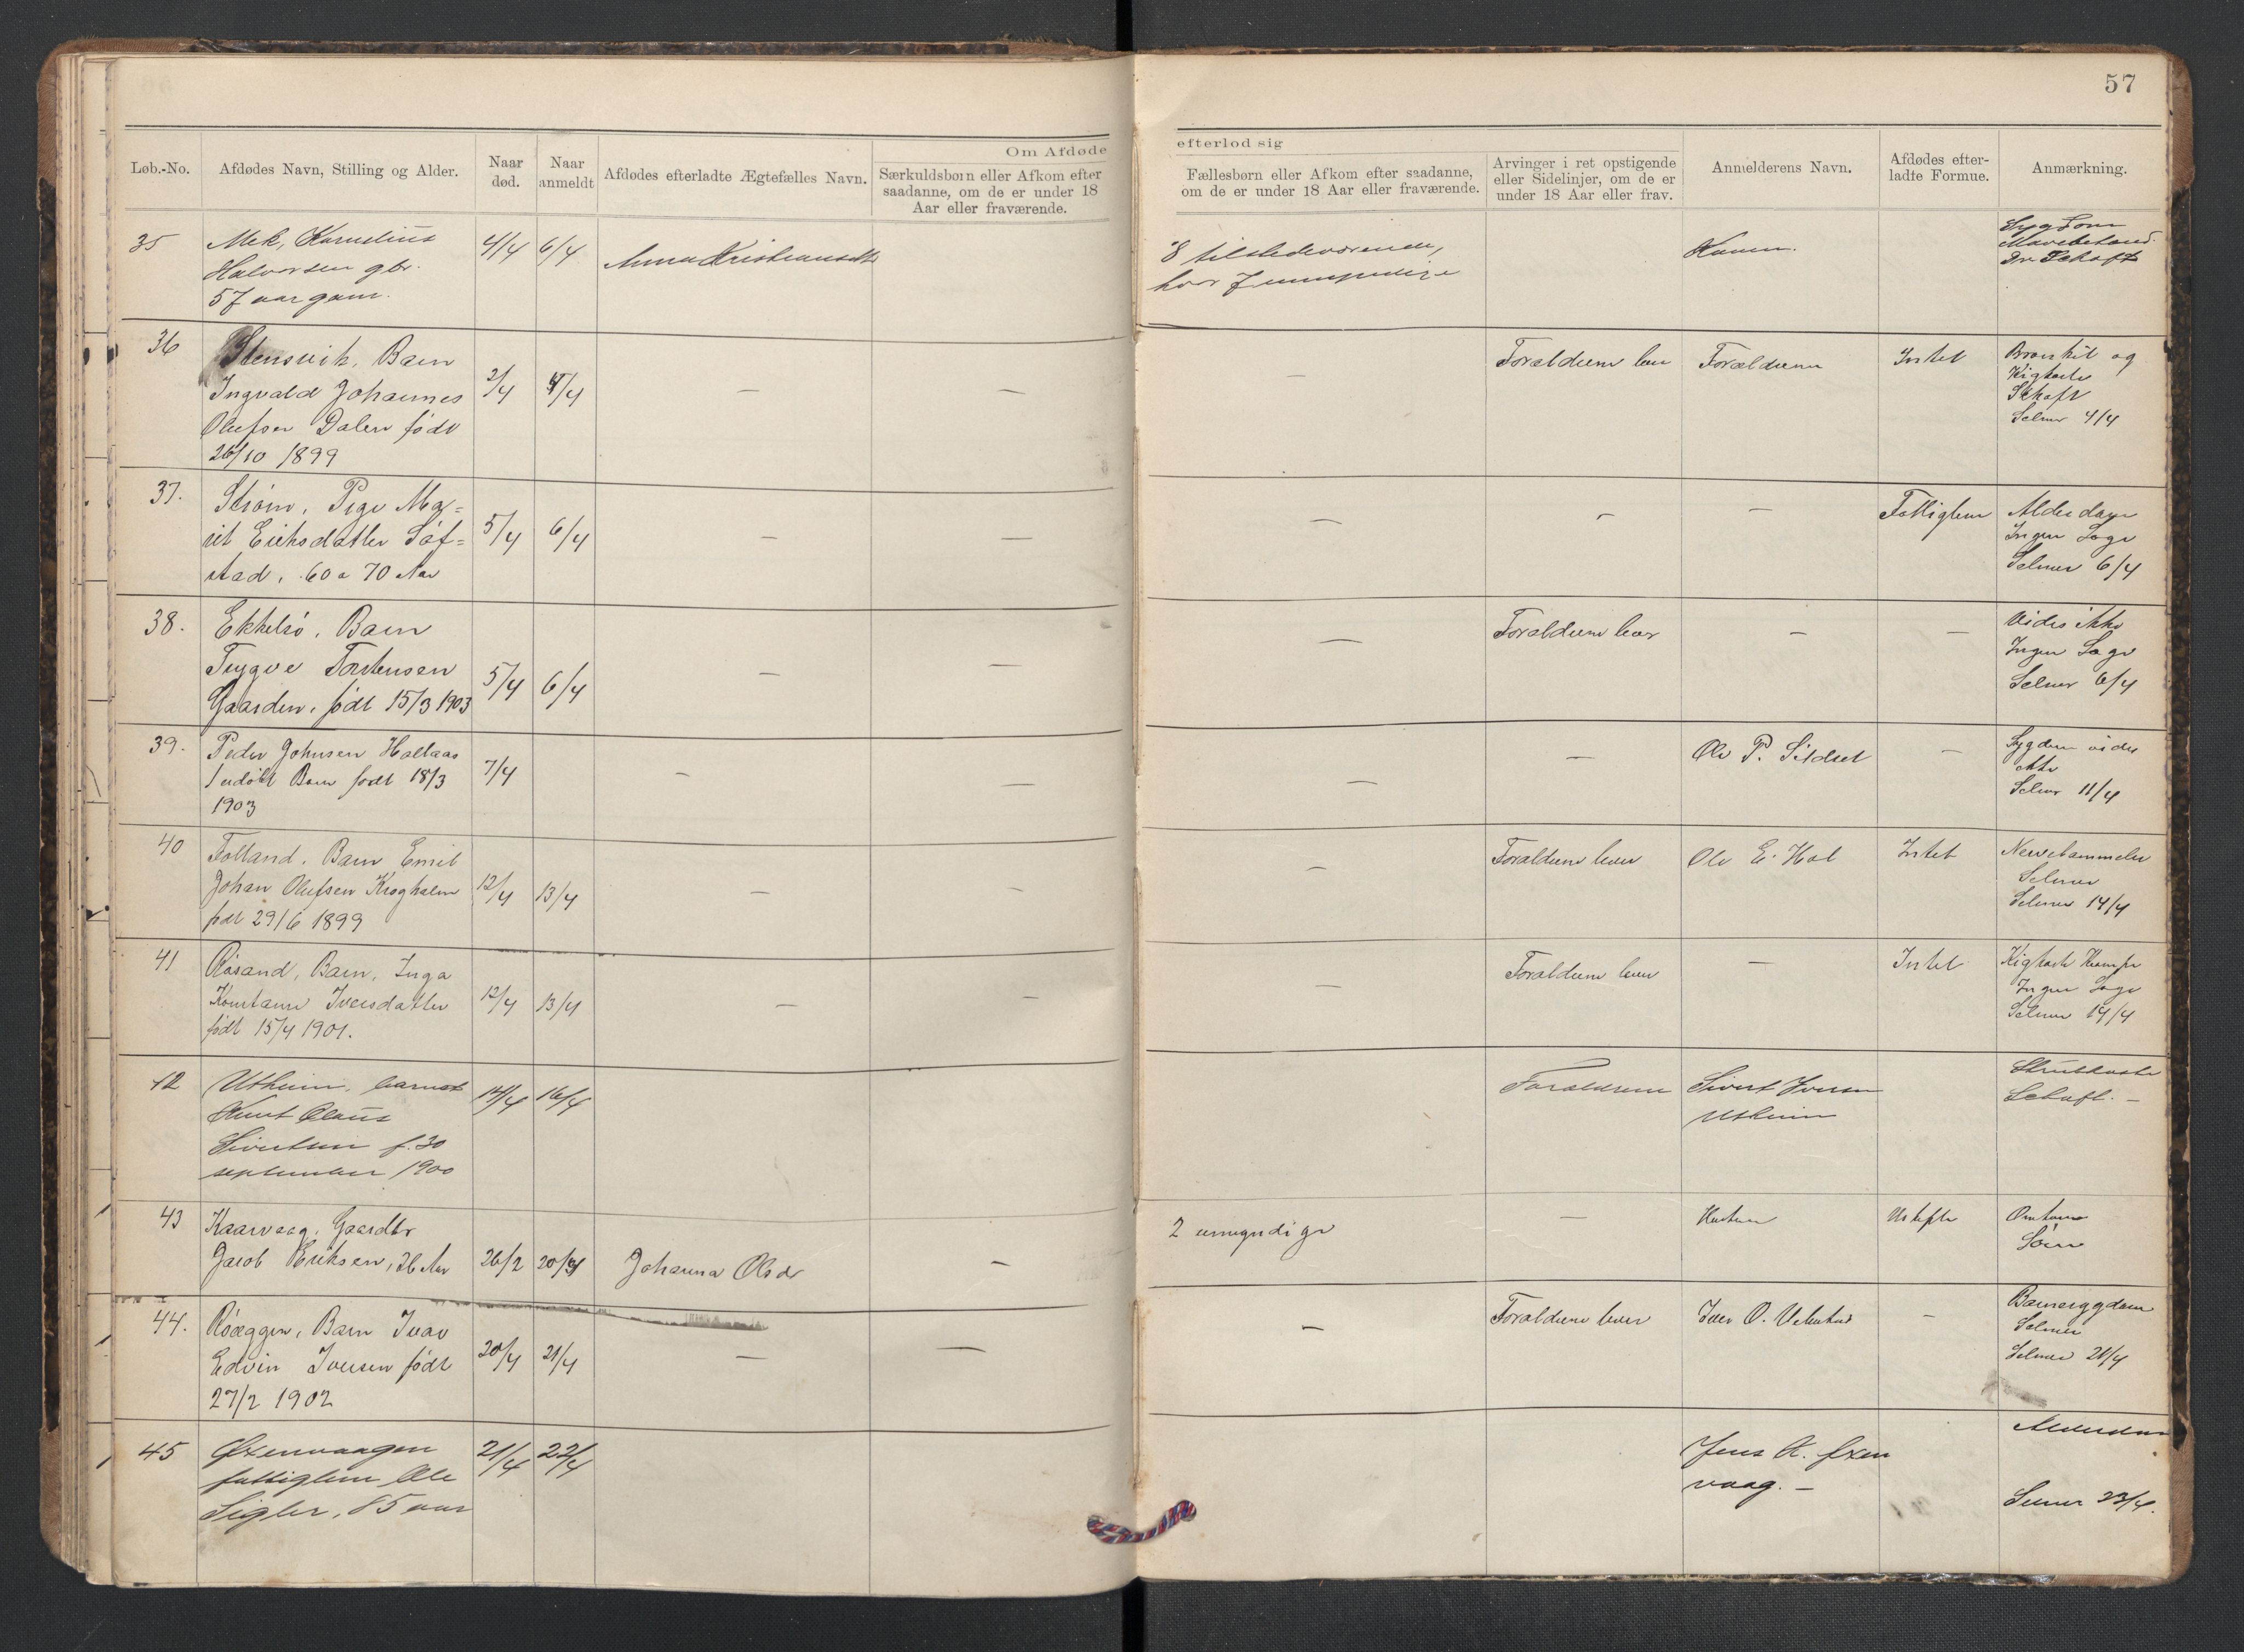 57
Om Afdøde
efterlod sig
Løb.-No.
Afdødes Navn, Stilling og Alder.
Naar død.
Naar anmeldt
Afdødes efterladte Ægtefælles Navn.
Særkuldsbørn eller Afkom efter saadanne, om de er under 18 Aar eller fraværende.
Fællesbørn eller Afkom efter saadanne, om de er under 18 Aar eller fraværende.
Arvinger i ret opstigende eller Sidelinjer, om de er under 18 Aar eller frav.
Anmelderens Navn.
Afdødes efterladte Formue.
Anmærkning.
35
Mek, Kornelius
Halvorsen gbr.
57 aar gam.
4/4
6/4
Anna Kristiansdtr
8 tilstedeværende,
hvor 7 umyndige
Konen.
Sygdom
Dr Schaft
36
Stensvik, Barn
Ingvald Johannes
Olufsen Dalen født
26/10 1899
2/4
4/4
—
—
—
Forældrene lever
Forældrene
Intet
Bronkit og
Kighoste
Skhaft
Selmer 4/4
37.
Strøm, Pige Ma=
rit Eriksdatter Søf=
stad, 60 a 70 Aar
5/4
6/4
—
—
—
—
—
Fattiglem
Alderdom
Ingen Læge
Selmer 6/4
38.
Ekkelsø, Barn
Trygve Torstensen
Gaarden, født 15/3 1903
5/4
6/4
—
—
—
Forældrene lever
—
—
Vides ikke
Ingen Læge
Selmer 6/4
39.
Peder Johnsen Hallaas
1 udøbt Barn født 18/3
1903
7/4
—
—
—
—
Ole P. Sildset
—
Sygdom vides
ikke
Selmer 11/4
40
Folland, Barn Emil
Johan Olufsen Krogholm
født 29/6 1899
12/4
13/4
—
—
—
Forældrene lever
Ole E. Hol
Intet
Selmer
Selmer 14/4
41
Røsand, Barn, Inga
Konstanse Iversdatter
født 15/4 1901.
12/4
13/4
—
—
—
Forældrene lever
—
Intet
Kighoste Krampe
Ingen Læge
Selmer 14/4
42
Utheim, barnet
Knut Olaus
Sivertsen f. 30
september 1900
14/4
16/4
Forældrene
Sivert Iversen
Utheim
Strubhoste
Schaft. —
43
Kaarvaag, Gaardbr
Jacob Eriksen, 36 Aar
26/2
20/4
Johanna Olsdr
—
2 umyndige
—
Hustruen
Uskifte
Omkom
Søen
44.
Røeggen, Barn Ivar
Edvin Iversen født
27/2 1902
20/4
21/4
—
—
—
Forældrene lever
Iver O.
—
Barnesygdom
Selmer
Selmer 21/4
45
Øxenvaagen
fattiglem Ole
Sigler, 85 aar
21/4
22/4
Jens K. Øxen
vaag. —
Alderdom
Selmer 23/4.